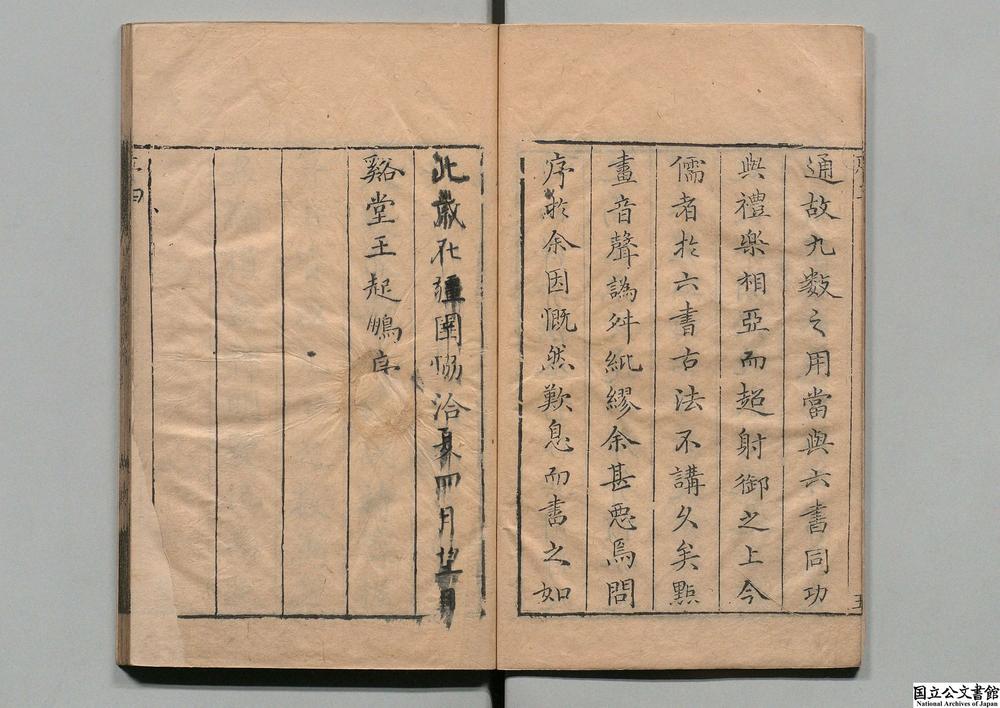 通故九數之用當與六書同功
與禮樂相亞而超射御之上今
儒者於六書古法不講久矣點
畫音聲譌舛紕繆余甚惡焉問
序於余因慨然歎息而書之如
此歲在疆圉協洽夏四月望日
谿堂王起鵬序
国立公文書館
National Archives of Japan